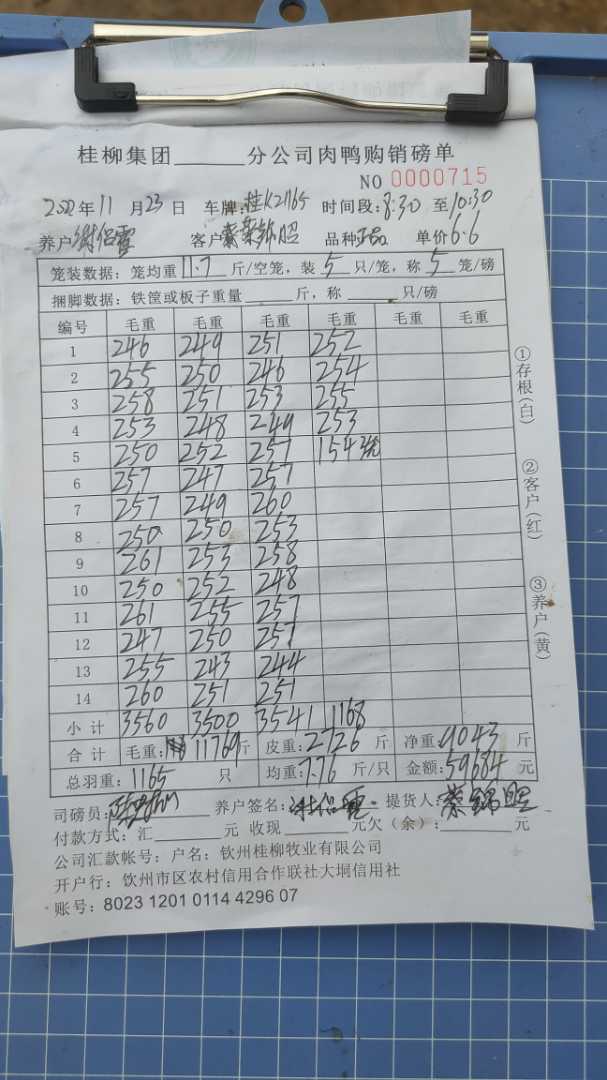 桂柳集团______分公司肉鸭购销磅单
NO 0000715
2022年11月23日 车牌:桂K21165 时间段:8:30至10:30
养户 客户 品种正品 单价6.6
笼装数据: 笼均重11.7斤/空笼, 装5只/笼, 称5笼/磅
捆脚数据: 铁筐或板子重量______斤, 称______只/磅
编号 毛重 毛重 毛重 毛重 毛重 毛重
1 246 249 251 252
2 255 250 246 254
3 258 251 253 255
4 253 248 249 253
5 250 252 257 154
6 257 247 257
7 257 249 260
8 250 250 253
9 261 253 258
10 250 252 248
11 261 255 257
12 247 250 257
13 255 243 244
14 260 251 251
小计 3560 3500 3541 1168
合计 毛重: 11769斤 皮重:2726斤 净重:9043斤
总羽重:1165只 均重:7.76斤/只 金额:59684元
司磅员: 养户签名: 提货人:
付款方式: 汇______元 收现______元欠(余):______元
公司汇款帐号: 户名: 钦州桂柳牧业有限公司
开户行: 钦州市区农村信用合作联社大垌信用社
账号: 8023 1201 0114 4296 07
①存根(白)
②客户(红)
③养户(黄)